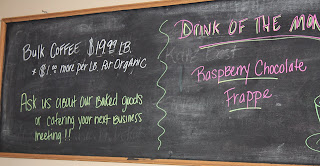 Bulk Coffee $19.99 LB.
* $1.00 more per LB. For Organic
Ask us about our baked goods
or catering your next business
meeting!!
Drink of the Mon
Raspberry Chocolate
Frappe